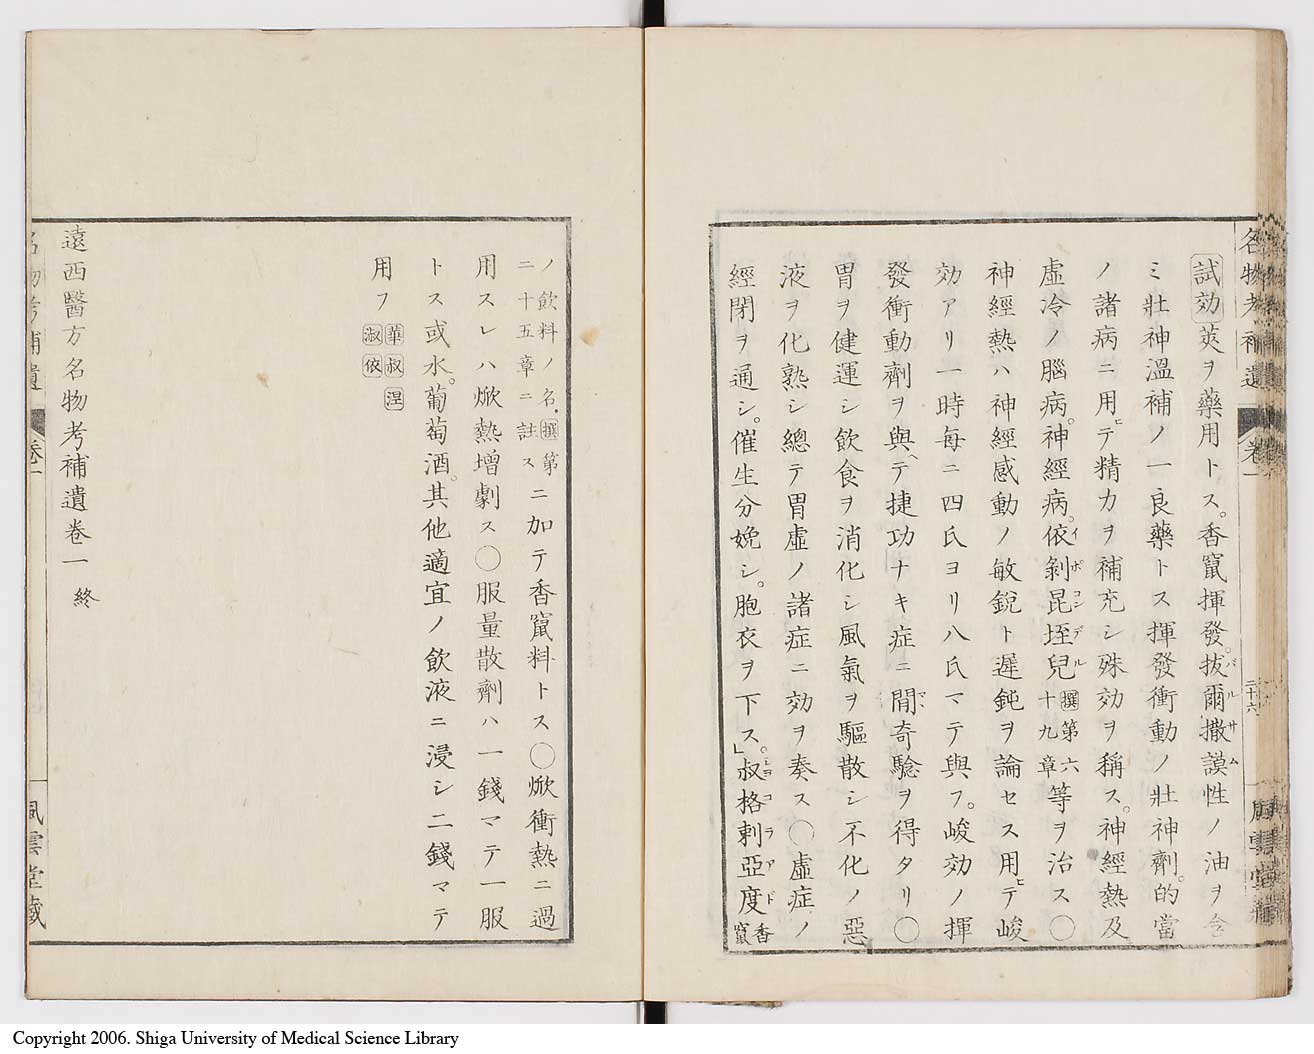 名物考補遺 卷一 二十六 風雲堂藏
試効 莢ヲ藥用トス。香竄揮發。拔爾撒謨性ノ油ヲ含
バルサム
ミ壯神溫補ノ一良藥トス揮發衝動ノ壯神劑。的當
ノ諸病ニ用ヒテ精力ヲ補充シ殊効ヲ稱ス。神經熱及
虛冷ノ腦病。神經病。依剝昆垤兒撰第六十九章等ヲ治ス〇
イポコンデル
神經熱ハ神經感動ノ敏銳ト遲鈍ヲ論セス用ヒテ峻
効アリ一時每ニ四氏ヨリ八氏マテ與フ。峻効ノ揮
發衝動劑ヲ與ヘテ捷功ナキ症ニ間奇驗ヲ得タリ〇
胃ヲ健運シ飮食ヲ消化シ風氣ヲ驅散シ不化ノ惡
液ヲ化熟シ總テ胃虛ノ諸症ニ効ヲ奏ス〇虛症ノ
經閉ヲ通シ。催生分娩シ。胞衣ヲ下ス。」叔格剌亞度香竄
ショコラアド
ノ飮料ノ名。撰第二十五章ニ註スニ加テ香竄料トス〇焮衝熱ニ過
用スレハ焮熱增劇ス〇服量散劑ハ一錢マテ一服
トス或水。葡萄酒。其他適宜ノ飮液ニ浸シ二錢マテ
用フ 華叔涅淑依
遠西醫方名物考補遺卷一 終
名物考補遺 卷一 風雲堂藏
Copyright 2006. Shiga University of Medical Science Library